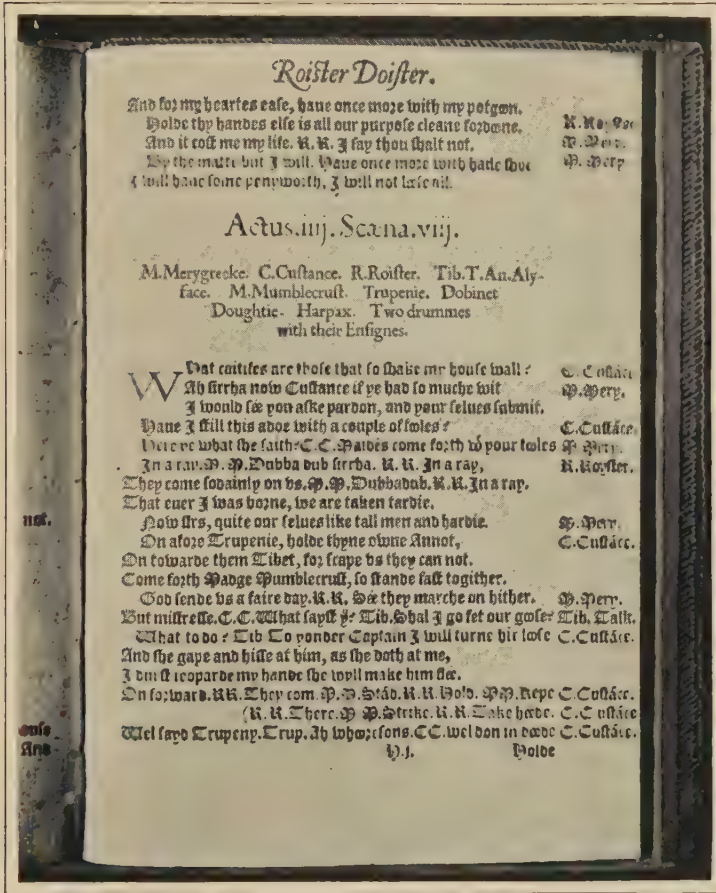 Roister Doister.
And for my heartes ease, haue once more with my potgoon.
Holde thy handes else is all our purpose cleane fordoone. R.Ro
And it cost me my life. R. R. I say thou shalt not. M.Mery.
By the matte but I will. Haue once more with haile shot M. Mery
I will haue some penyworth, I will not leese all.
Actus.iiij. Scæna.viij.
M.Merygreeke. C.Custance. R.Roister. Tib.T.An.Aly-
face. M.Mumblecrust. Trupenie. Dobinet
Doughtie. Harpax. Two drummes
with their Ensignes.
What caitifes are those that so shake my house wall? C.Custāce
Ah sirrha now Custance if ye had so muche wit M.Mery.
I would see you aske pardon, and your selues submit.
Haue I still this adoe with a couple of fooles? C.Custāce.
Here ye what she saith? C.C. Maides come forth wͭ your tooles M Mery.
In a ray. M. M. Dubba dub sirrha. R. R. In a ray, R.Royster.
They come sodainly on vs. M. M. Dubbadub. R. R. In a ray.
That euer I was borne, we are taken tardie.
not. Now sirs, quite our selues like tall men and hardie. M.Mery.
On afore Trupenie, holde thyne owne Annot, C.Custāce.
On towarde them Tibet, for scape vs they can not.
Come forth Madge Mumblecrust, so stande fast togither.
God sende vs a faire day. R.R. See they marche on hither. M.Mery.
But mistresse. C.C. What sayst yͧ? Tib. Shal I go fet our goose? Tib. Talk.
What to do? Tib To yonder Captain I will turne hir loose C.Custāce.
And she gape and hisse at him, as she doth at me,
I durst ieoparde my hande she wyll make him flee.
On forward. RR. They com. M. M. Stād. R. R. Hold. MM. Kepe C.Custāce.
(R. R. There. M M. Strike. R. R. Take heede. C.Custāce
And Wel sayd Trupeny. Trup. Ah whooresons. CC. wel don in deede C.Custāce.
H.j. Holde